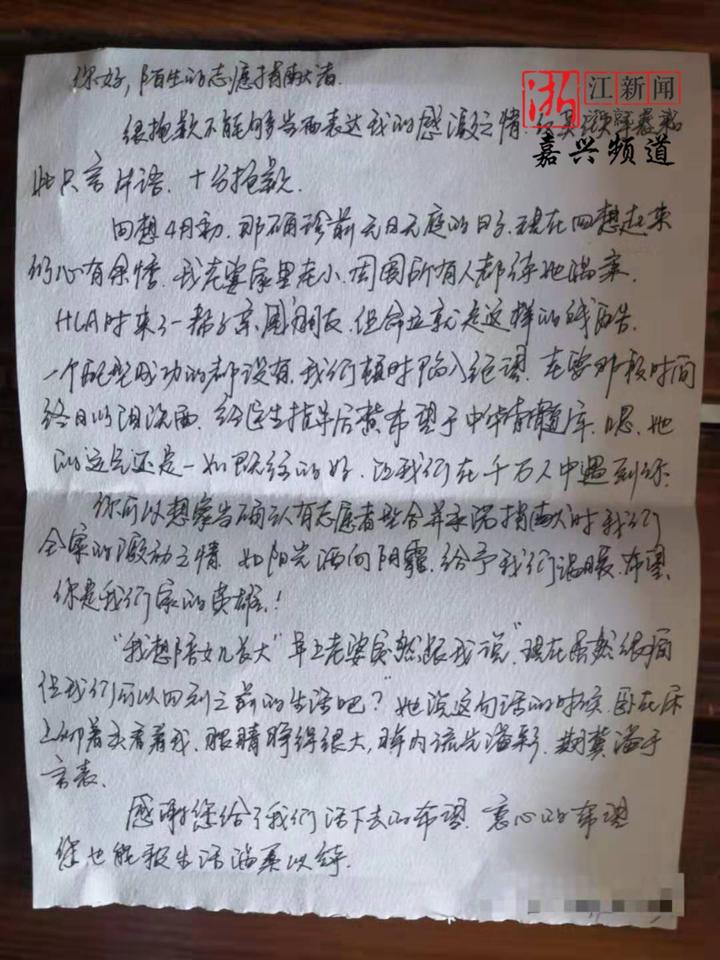 你好,陌生的志愿捐献者.
浙 江新闻
嘉兴频道
很抱歉不能够当面表达我的感激之情.
此只言片语、十分抱歉.
回想4月初.那确诊前无日无夜的日子.现在回想起来
仍心有余悸.我老婆家里老小.周围所有人都待她温柔.
HLA时来了一帮子亲,朋友,但命运就是这样的残酷.
一个配型成功的都没有.我们顿时陷入绝望.老婆那段时间
终日以泪洗面.给医生指导后赞希望于中华骨髓库.嗯.她
的运气还是一如既往的好.让我们在千万人中遇到你.
你可以想象当确认有志愿者吻合并承诺捐献时我们
全家的激动之情.如阳光洒向阴霾.给予我们温暖.希望.
你是我们家的英雄!
"我想陪女儿长大"早上老婆突然跟我说"现在虽然很痛
但我们可以回到之前的生活吧?"她说这句话的时候.卧在床
上仰着头看着我.眼睛睁得很大,眸内流光溢彩.期冀溢于
言表.
感谢您给了我们活下去的希望.衷心的希望
您也能被生活温柔以待.